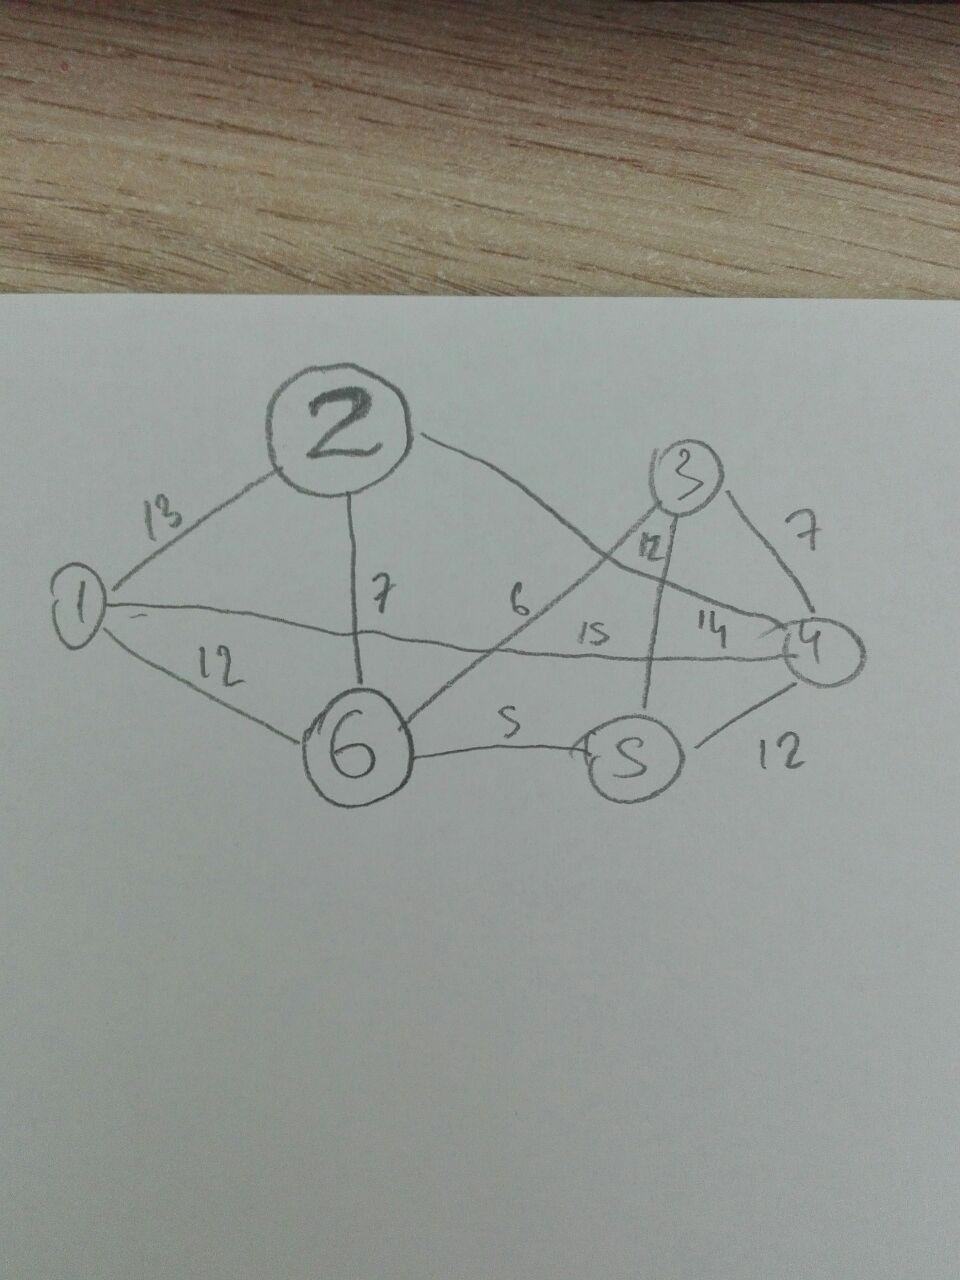 2
3
13
7
12
1
7
6
15
14
4
12
6
5
5
12